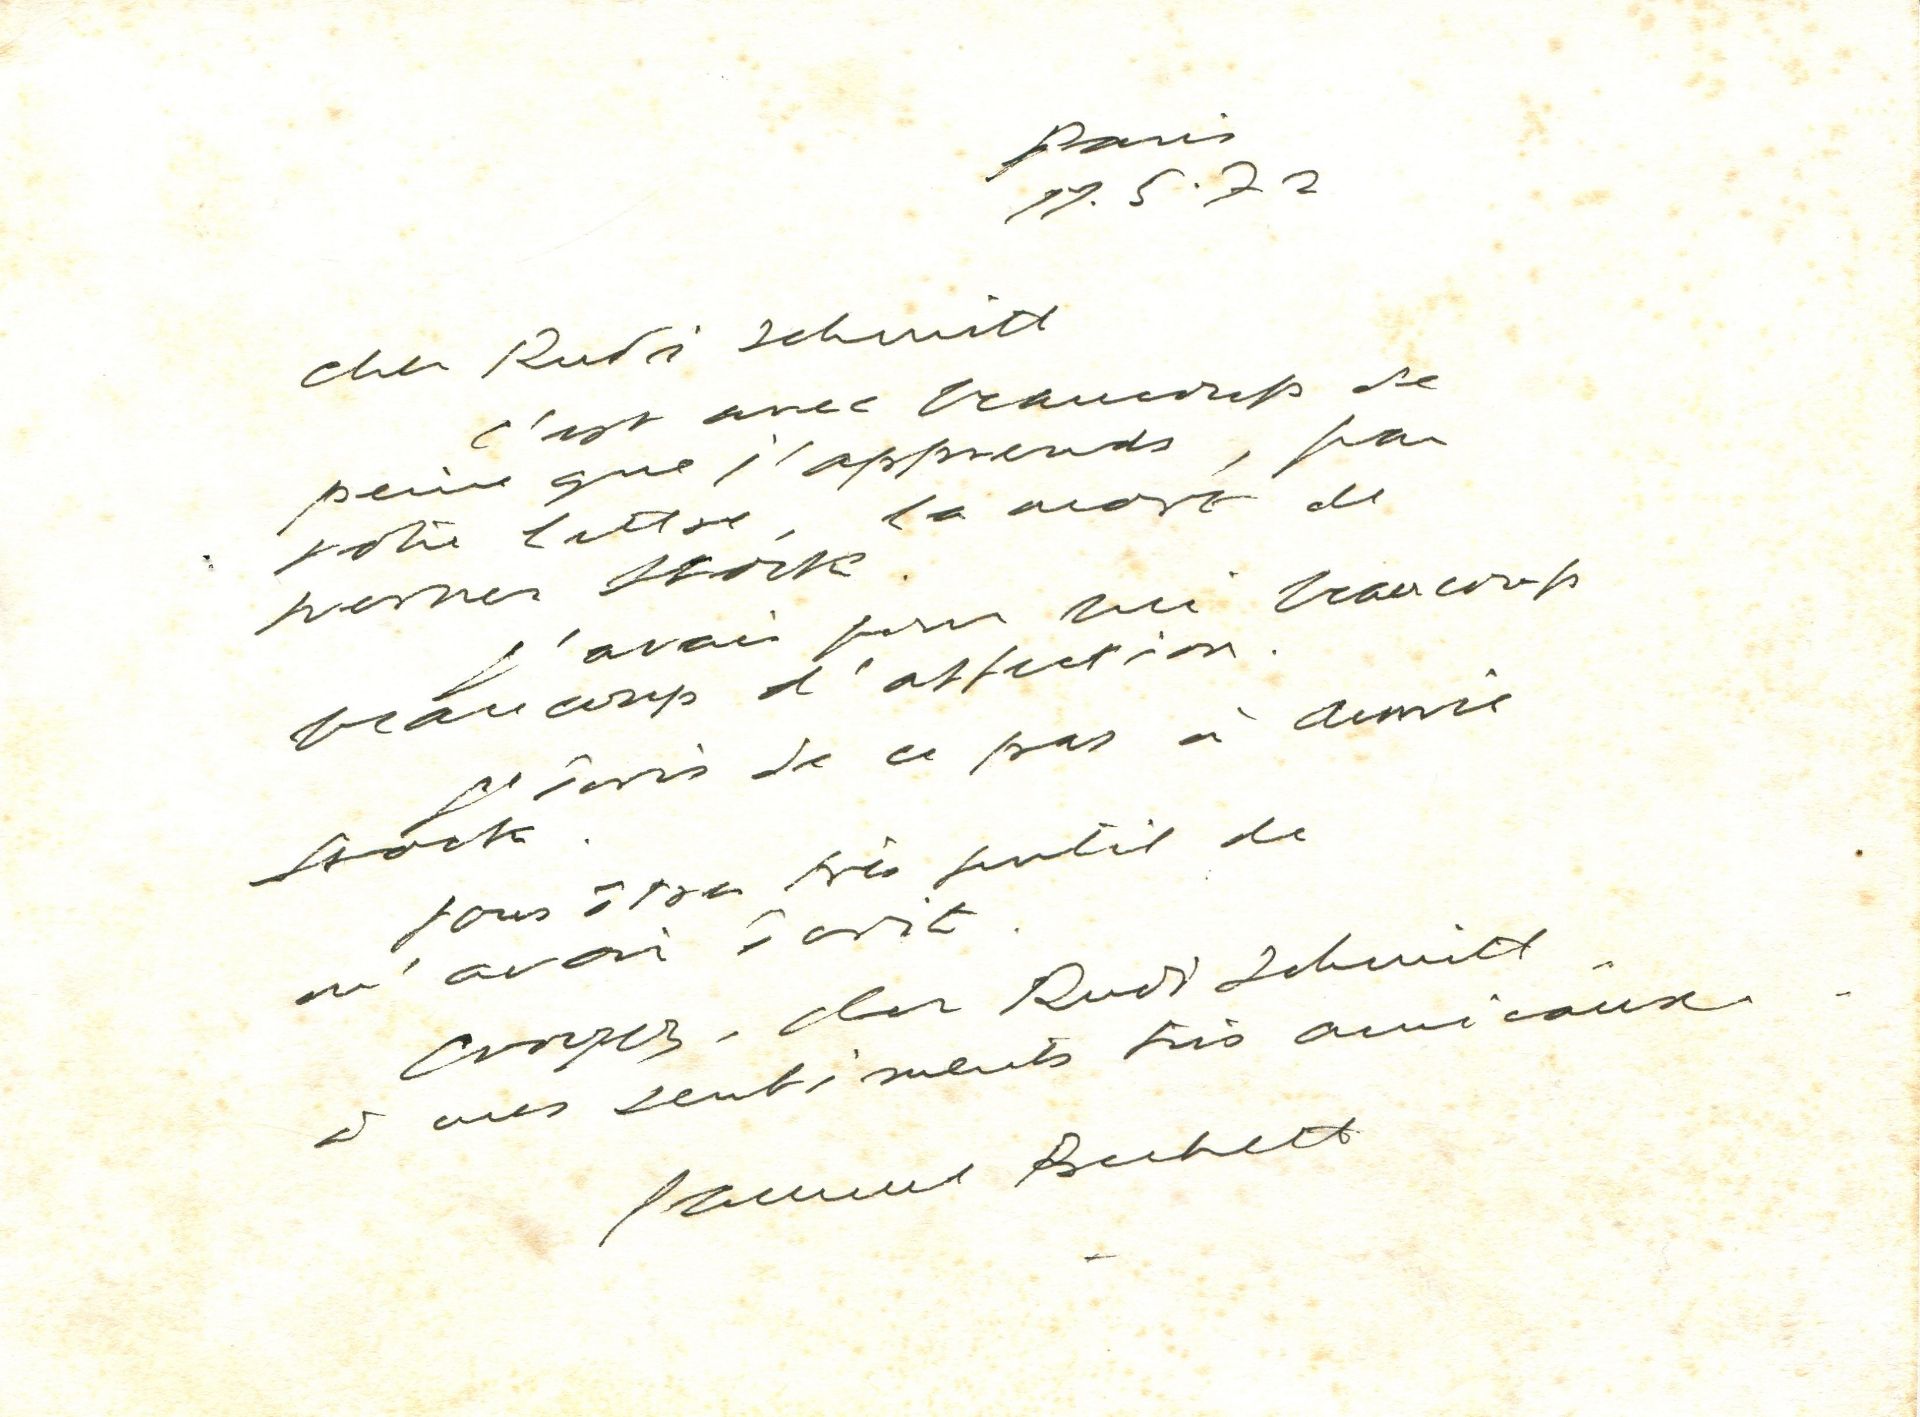 Paris
17.5.72
Cher Rudi Schmitt
C'est avec beaucoup de
peine que j'apprends, par
votre lettre, la mort de
Werner Stock.
J'avais pour lui beaucoup
beaucoup d'affection.
J'écris de ce pas à Annie
Stock.
Vous êtes très gentil de
m'avoir écrit.
Croyez, cher Rudi Schmitt,
à mes sentiments très amicaux.
Samuel Beckett